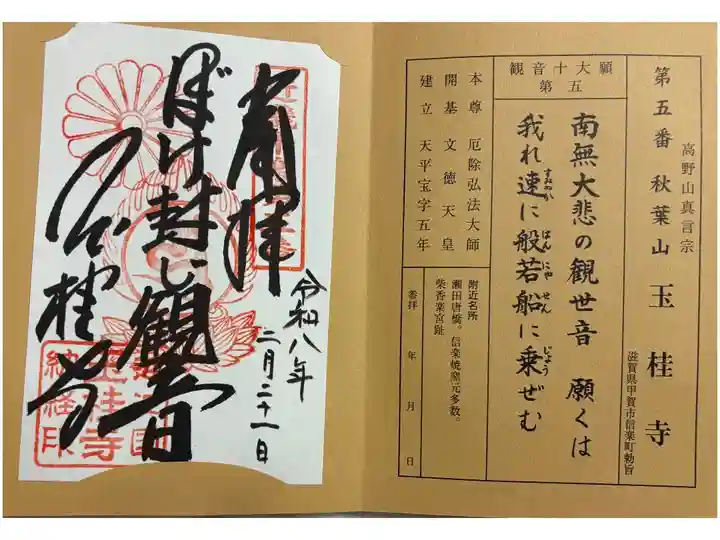 高野山真言宗
第五番 秋葉山 玉桂寺
滋賀県甲賀市信楽町勅旨
観音十大願
第五
南無大悲の観世音 願くは
我れ速に般若船に乗ぜむ
すみやか はんにゃせん じょう
本尊 厄除弘法大師
開基 文徳天皇
建立 天平宝字五年
附近名所
瀬田唐橋。信楽焼窯元多数。
紫香楽宮趾
参拝 年 月 日
奉拝
ぼけ封じ観音
玉桂寺
令和八年
二月二十一日
玉桂寺
納経印